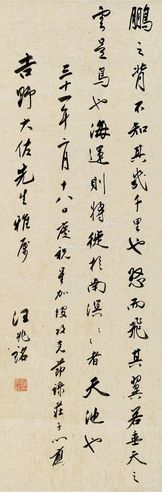 鵬之背不知其幾千里也怒而飛其翼若垂天之
雲是鳥也海運則將徙於南溟〻〻者天池也
三十一年二月十八日慶祝星加坡攻克節錄莊子以應
吉野大佐先生雅屬
汪兆銘